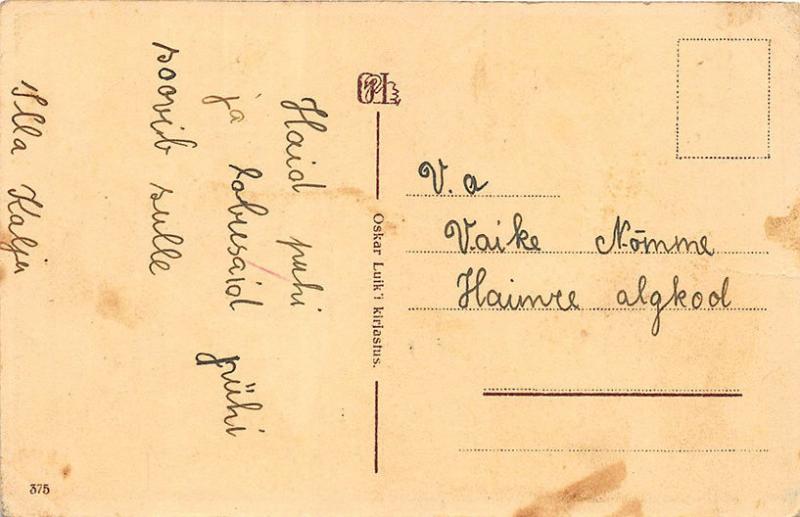 Haid puhi
ja lobusaid pühi
soovib sulle
Illa Kalju
Oskar Luik'i kirjastus.
V. a
Vaike Nõmme
Haimre algkool
375